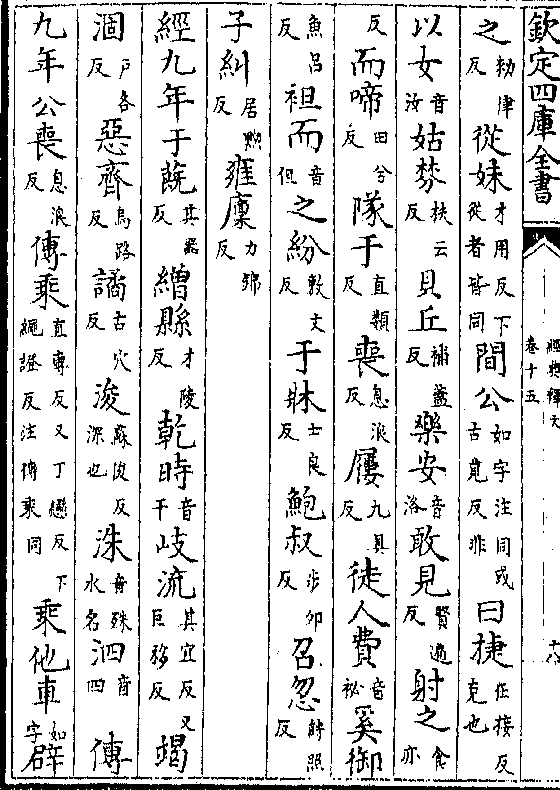 欽定四庫全書
經典釋文
卷十五
之勑律反從妹才用反下從者皆同間公如字注同或古莧反非曰捷在接反克也
以女音汝姑棼扶云反貝丘補蓋反樂安音洛敢見賢遍反射之食亦
反而啼田兮反隊于直類反喪息浪反屨九具反徒人費音祕奚御
魚呂反袒而音但之紛敷文反于牀士良反鮑叔步卯反召忽時照反
子糾居黝反雍廩力錦反
經九年于蔇其器反繒縣才陵反乾時音干岐流其宜反又巨移反竭
涸戶各反惡齊烏路反譎古穴反浚蘇俊反深也洙音殊水名泗音四傳
九年公喪息浪反傳乘直專反又丁戀反下繩證反注傳乘同乘他車如字辟